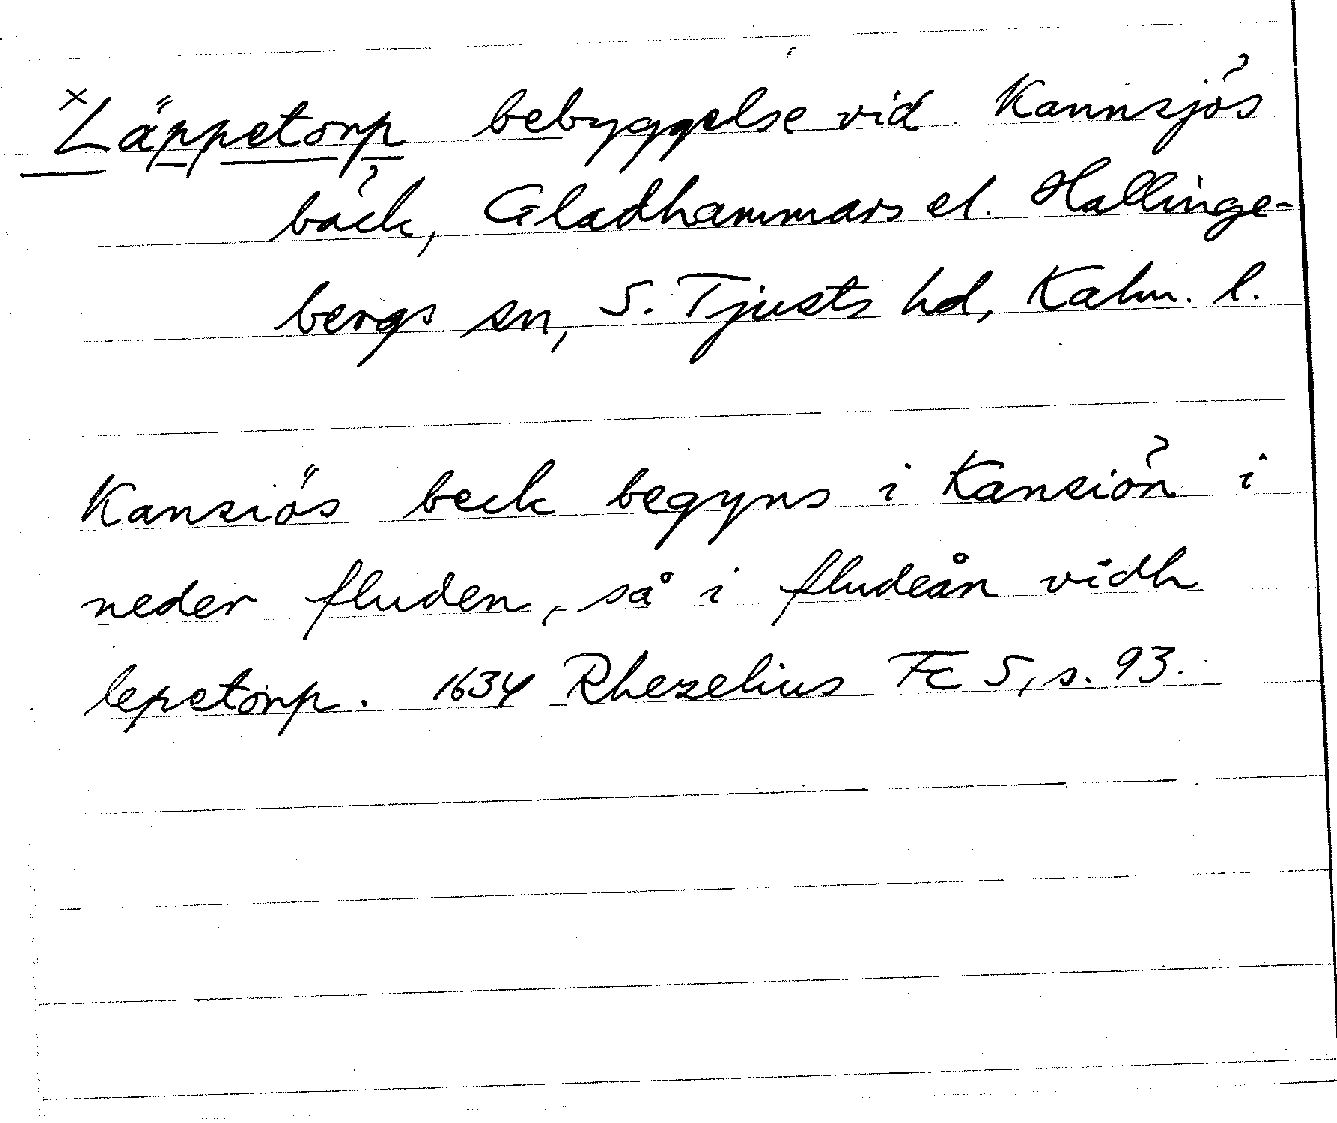 ×Läppetorp bebyggelse vid Kannsjös
bäck, Gladhammars el. Hallinge-
bergs sn, S. Tjusts hd, Kalm. l.
Kansiös beck begyns i Kansiön i
neder fluden, så i fludeån vidh
lepetorp. 1634 Rhezelius Fc 5, s. 93.